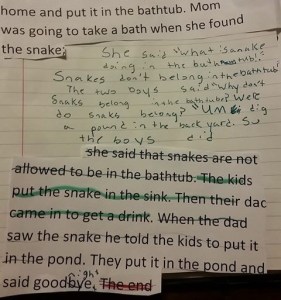 home and put it in the bathtub. Mom
was going to take a bath when she found
the snake.
She said "what is a snake
doing in the bathtub!"
Snakes don't belong in the bathtub!
The two boys said "Why don't
snaks belong in the bathtub? Were
do snaks belong? "Um dig
a pound in the back yard. So
the boys did
she said that snakes are not
allowed to be in the bathtub. The kids
put the snake in the sink. Then their dac
came in to get a drink. When the dad
saw the snake he told the kids to put it
in the pond. They put it in the pond and
said goodbye. The end
night